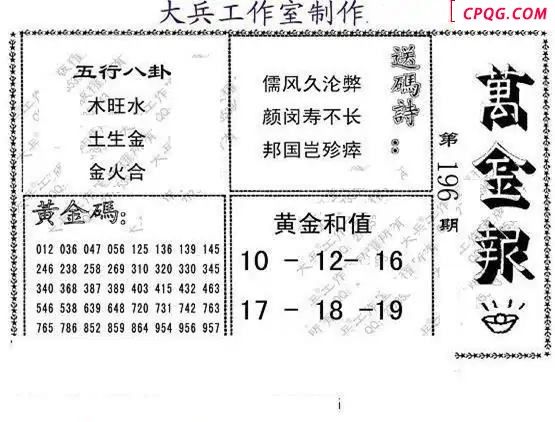 大兵工作室制作
CPQG.COM
萬金報
第196期
五行八卦
木旺水
土生金
金火合
送碼詩：
儒风久沦弊
颜闵寿不长
邦国岂殄瘁
黃金碼：
012 036 047 056 125 136 139 145
246 238 258 269 310 320 330 345
340 368 387 389 403 415 432 463
546 538 639 648 720 731 742 763
765 786 852 859 864 954 956 957
黄金和值
10 - 12- 16
17 - 18 -19
i